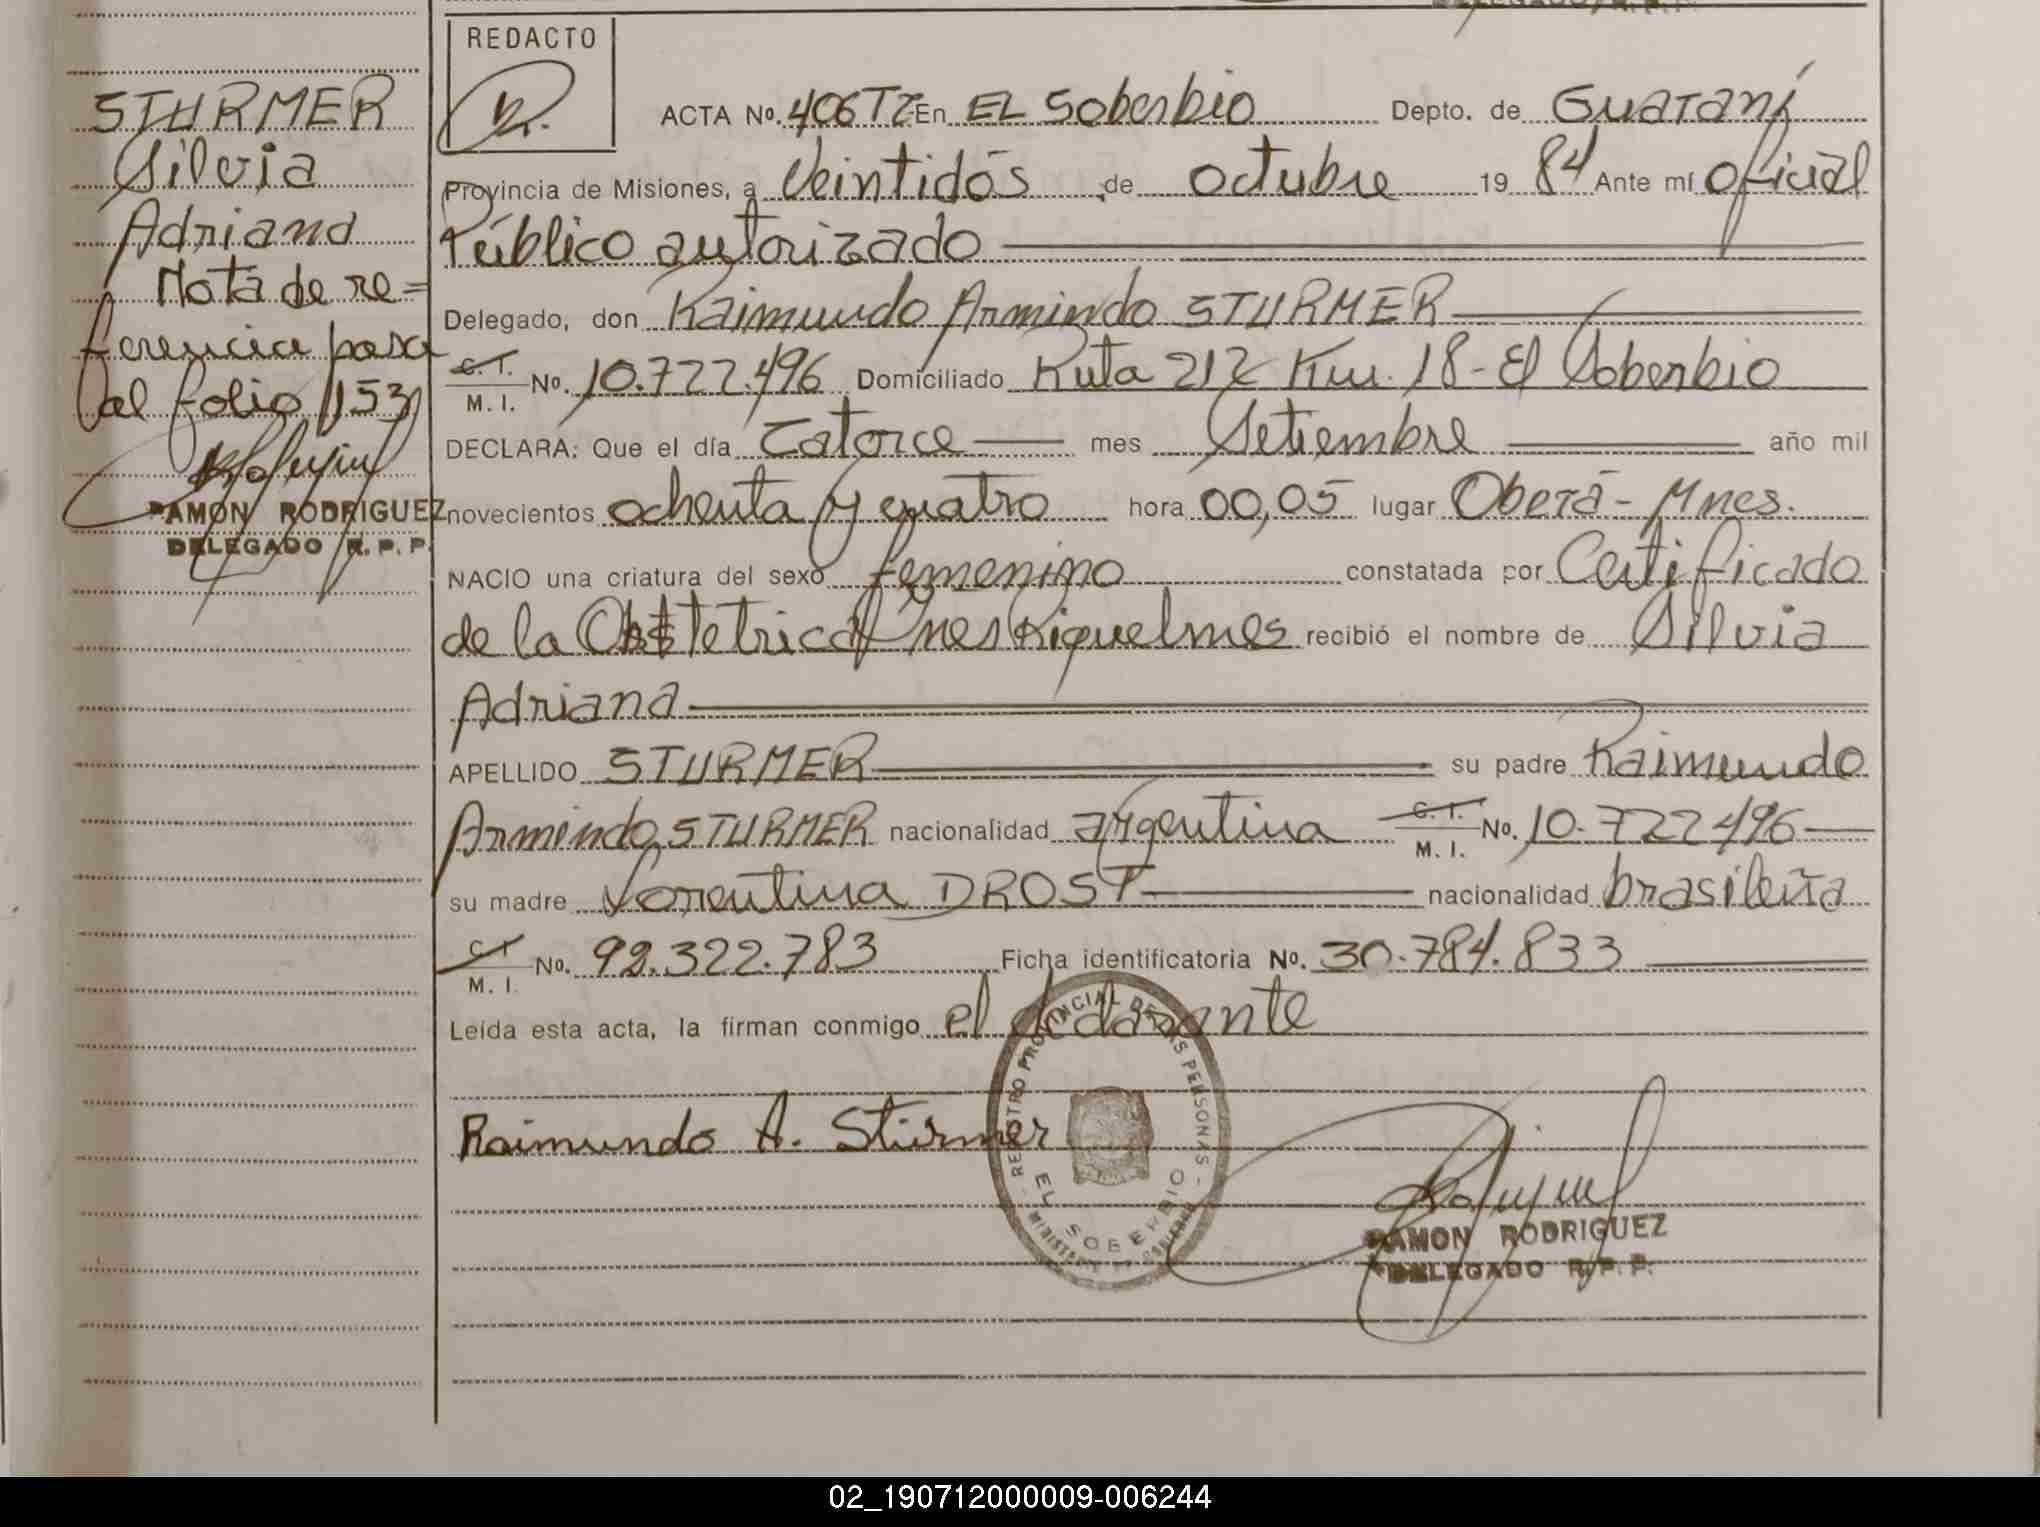 DELEGADO R. P. P.
REDACTO
STURMER
Silvia
Adriana
Nota de re=
ferencia pasa
al folio 153
RAMON RODRIGUEZ
DELEGADO R. P. P.
ACTA No. 406TZ En EL Soberbio Depto. de Guaraní
Provincia de Misiones, a Veintidós de octubre 19 84 Ante mí oficial
Público autorizado
Delegado, don Raimundo Armindo STURMER
C. I. M. I. No. 10.722.496 Domiciliado Ruta 212 Km. 18 - El Soberbio
DECLARA: Que el día Catorce mes Setiembre año mil
novecientos ochenta y cuatro hora 00,05 lugar Oberá - Mnes.
NACIO una criatura del sexo femenino constatada por Certificado
de la Obstetrica Ines Riquelmes recibió el nombre de Silvia
Adriana
APELLIDO STURMER su padre Raimundo
Armindo STURMER nacionalidad argentina C. I. M. I. No. 10.722.496
su madre Lorentina DROST nacionalidad brasileira
C I M. I. No. 92.322.783 Ficha identificatoria No. 30.784.833
Leída esta acta, la firman conmigo el declarante
Raimundo A. Stürmer
REGISTRO PROVINCIAL DE LAS PERSONAS
EL SOBERBIO
MINISTERIO DE GOBIERNO
RAMON RODRIGUEZ
DELEGADO R. P. P.
02_190712000009-006244